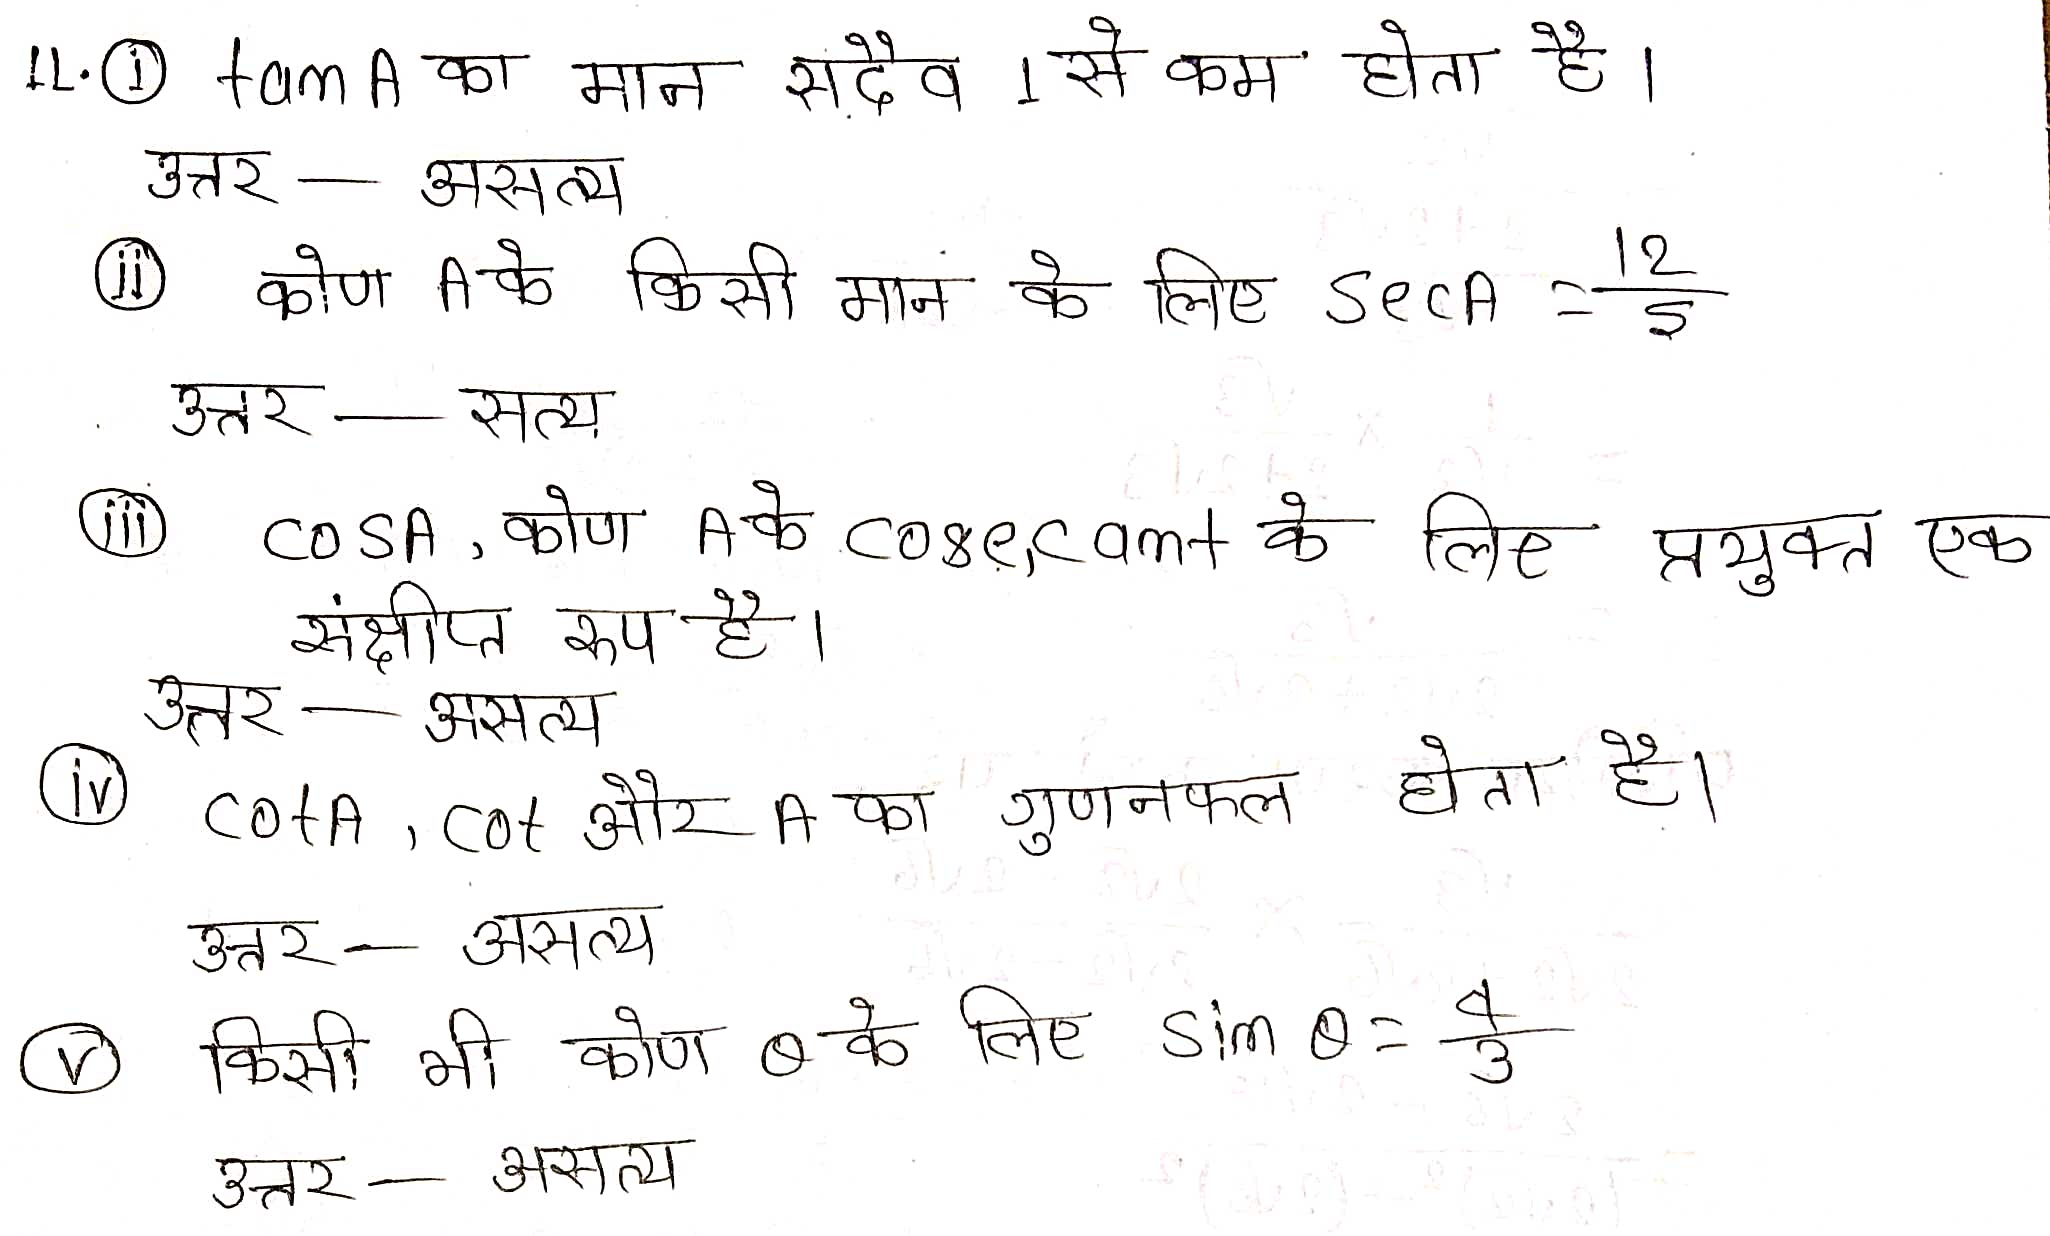 11. (i) tan A का मान सदैव 1 से कम होता है।
उत्तर — असत्य
(ii) कोण A के किसी मान के लिए sec A = 12/5
उत्तर — सत्य
(iii) cos A, कोण A के cosecant के लिए प्रयुक्त एक
संक्षीप्त रूप है।
उत्तर — असत्य
(iv) cot A, cot और A का गुणनफल होता है।
उत्तर — असत्य
(v) किसी भी कोण θ के लिए sin θ = 4/3
उत्तर — असत्य